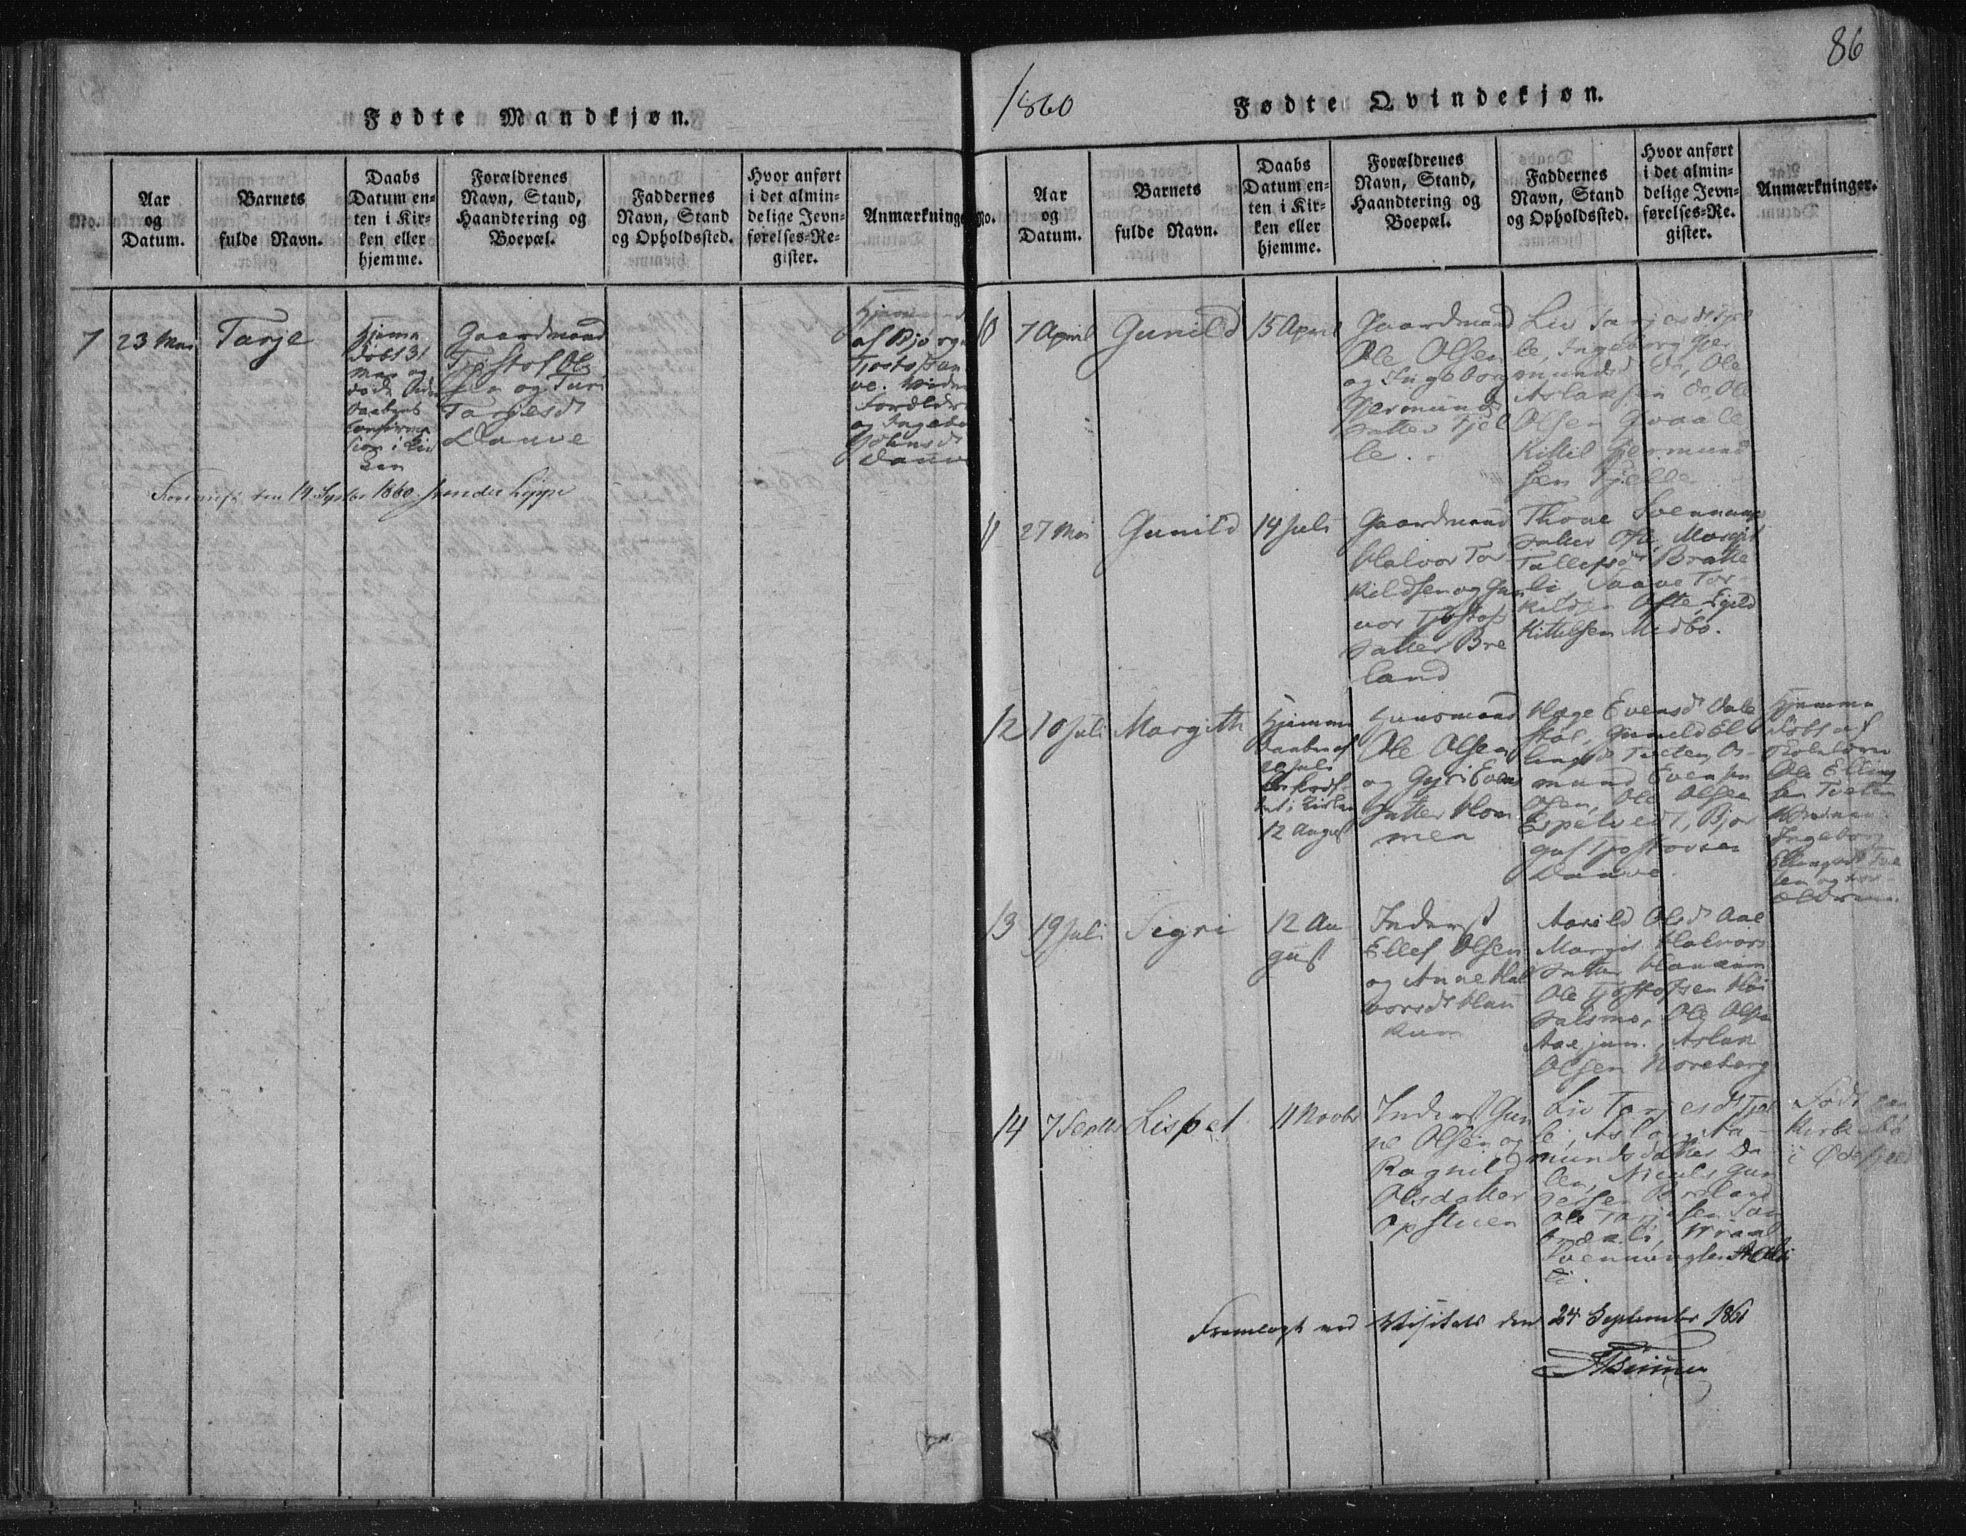 Fødte Mandkjøn.
No.
Aar
og
Datum.
Barnets
fulde Navn.
Daabs
Datum en-
ten i Kir-
ken eller
hjemme.
Forældrenes
Navn, Stand,
Haandtering og
Boepæl.
Faddernes
Navn, Stand
og Opholdssted.
Hvor anført
i det almin-
delige Jevn-
førelses-Re-
gister.
Anmærkninger
7
23 Mai
Tarje
Hjemme
døbt 31
Mai og
døde
Gaardmand
Tjøstof Ols
sen og Turi
Tarjesdt
Dauve
af Bjørgu
Tjostofsen
Forældre
og Ingebor
Johnsdt
Dauve
den 14 Septbr 1860
86
1860
Fødte Qvindekjøn.
No.
Aar
og
Datum.
Barnets
fulde Navn.
Daabs
Datum en-
ten i Kir-
ken eller
hjemme.
Forældrenes
Navn, Stand,
Haandtering og
Boepæl.
Faddernes
Navn, Stand
og Opholdssted.
Hvor anført
i det almin-
delige Jevn-
førelses-Re-
gister.
Anmærkninger.
10
7 April
Gunild
15 April
Gaardmand
Ole Olsen
og Ingeborg
Gjermunds
datter Fjel
le.
Liv Tarjesdt Fjel
le, Ingeborg Gjer
mundsd do, Ole
Aslaksen do, Ole
Olsen Qvaale
Kittil Gjermund
sen Fjelle
11
27 Mai
Gunild
14 Juli
Gaardmand
Halvor Tor
kildsen og Gun
vor Tjøstofs
datter Bre
land
Thone Svennungs
datter Ofte, Margit
Tallefsdr Bratte
li, Saave Tor-
kildsen Ofte, Egild
Kittelsen Midbø.
12
10 Juli
Margith
Hjemme
daaben af
12 August
Huusmand
Ole Olsen
og Gyri Evens
datter Hom
men
Hæge Evensdt Dale
støl, Gunild El
lingsdt Tveten, O-
mund Evensen
Ole Olsen
Espelvedt, Bjør
guf Tjostovsen
Dauve.
Hjemme
døbt af
Skolelærer
Ole Elling
sen Tveten
Ingeborg
Ellingsdt Tve
ten og For-
ældrene.
13
19 Juli
Sigri
12 Au
gust
Inderst
Ellef Olsen
og Anne Hal
vorsdt Hau
kum
Aasild Olsdt Aae
Margit Halvors
datter Haukum
Ole Tjøstofsen Høi
dalsmo, Ole Olsen
Aae jun., Aslak
Olsen Noreborg
14
7 Septbr
Lispet
11 Novbr
Inderst Gun
ne Olsen og
Ragnild
Olsdatter
Opstuen
Liv Tarjesdt Fjel
le, Aslaug Aa-
mundsdatter Da
len, Niculs Gun
dersen Breland
Ole Tarjesen San
Svennungsen
li.
Født paa
Kirkebø
i Ødefjeld
Fremlagt ved Visitats den 24 September 1861